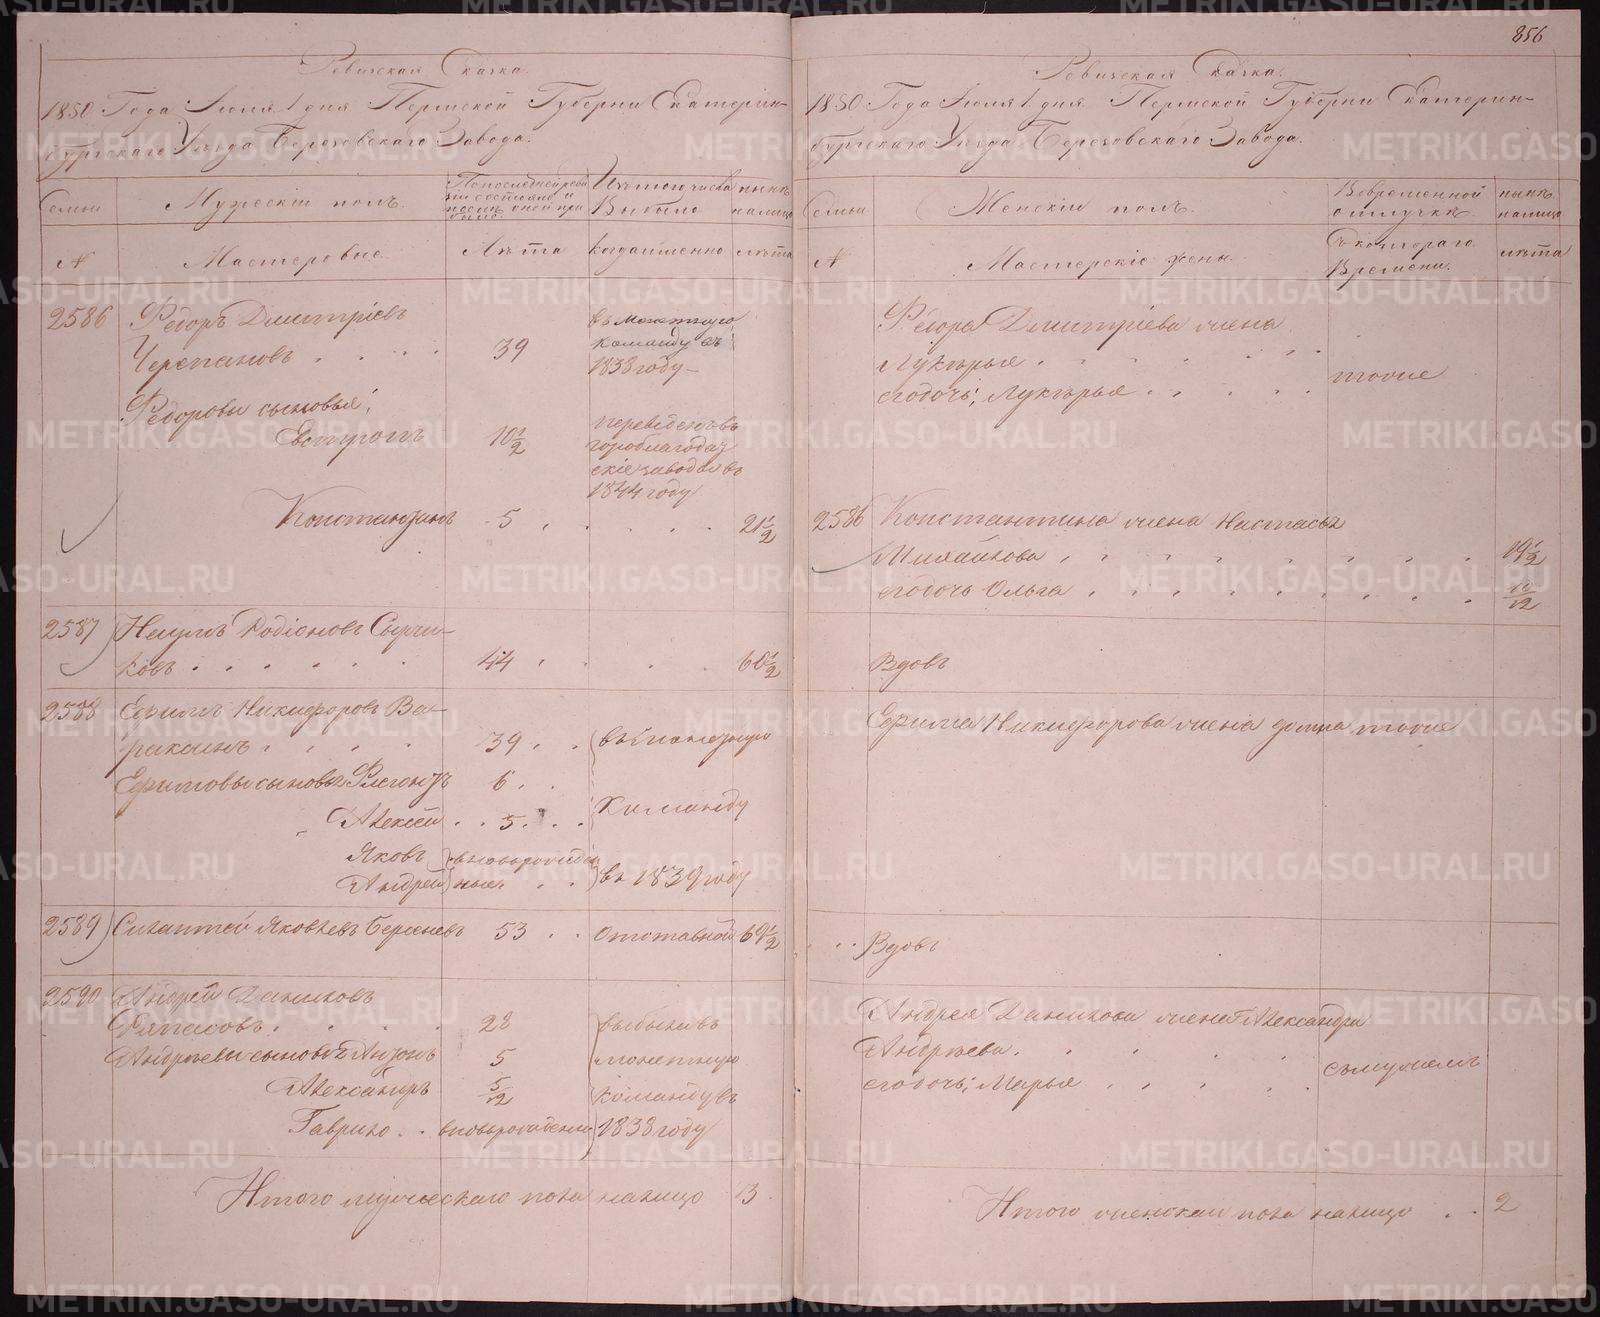 856
Ревижская Сказка.
1850 Года Іюля 1 дня Пермской Губерни Екатерин-
бургскаго Уѣзда Березовскаго Завода.
Семьи
Мужескій полъ.
По последней реви
зіи состояло и
после оной при
было
Изъ того числа
Выбыло
нынѣ
налицо
№
Мастеровые
Лѣта
когда именно
лѣта
2586
Ѳедоръ Дмитріевъ
Черепановъ
39
команду въ
1838 году
Ѳедоровы сыновья;
10 1/2
переведенъ въ
гороблагодат
скіе заводы въ
1844 году
Константинъ
5
21 1/2
2587
Наумъ Родіоновъ Сырчи-
ковъ
44
60 1/2
2588
Ефимъ Никифоровъ Ва-
39
въ монетную
Ефимовы сыновья Флегонтъ
6
Алексей
5
команду
Яковъ
Андрей
вновьрожден
ные
въ 1839 году
2589
Яковлевъ
53
Отставной
69 1/2
2590
Андрей Даниловъ
28
выбылъ въ
Андреевы сыновья Антонъ
5
монетную
Александръ
5/12
команду въ
Гаврило
вновьрожденъ
1838 году
Итого мужескаго пола налицо
13
Ревижская Сказка.
1850 Года Іюля 1 дня Пермской Губерни Екатерин-
бургскаго Уѣзда Березовскаго Завода.
Семьи
Женскій полъ.
Во временной
отлучкѣ
нынѣ
налицо
№
Мастерскіе жены
Съ котораго
Времени.
лѣта
Ѳедора Дмитріева жена
Лукерья
егодочь; Лукерья
тоже
2586
Константина жена Настасья
Михайлова
19 1/2
егодочь Ольга
10/12
Вдовъ
Ефима Никифорова жена Домна тоже
Вдовъ
Андрея Данилова жена Александра
Андреева
егодочь; Марья
съ мужемъ
Итого женскаго пола налицо
2
METRIKI.GASO-URAL.RU